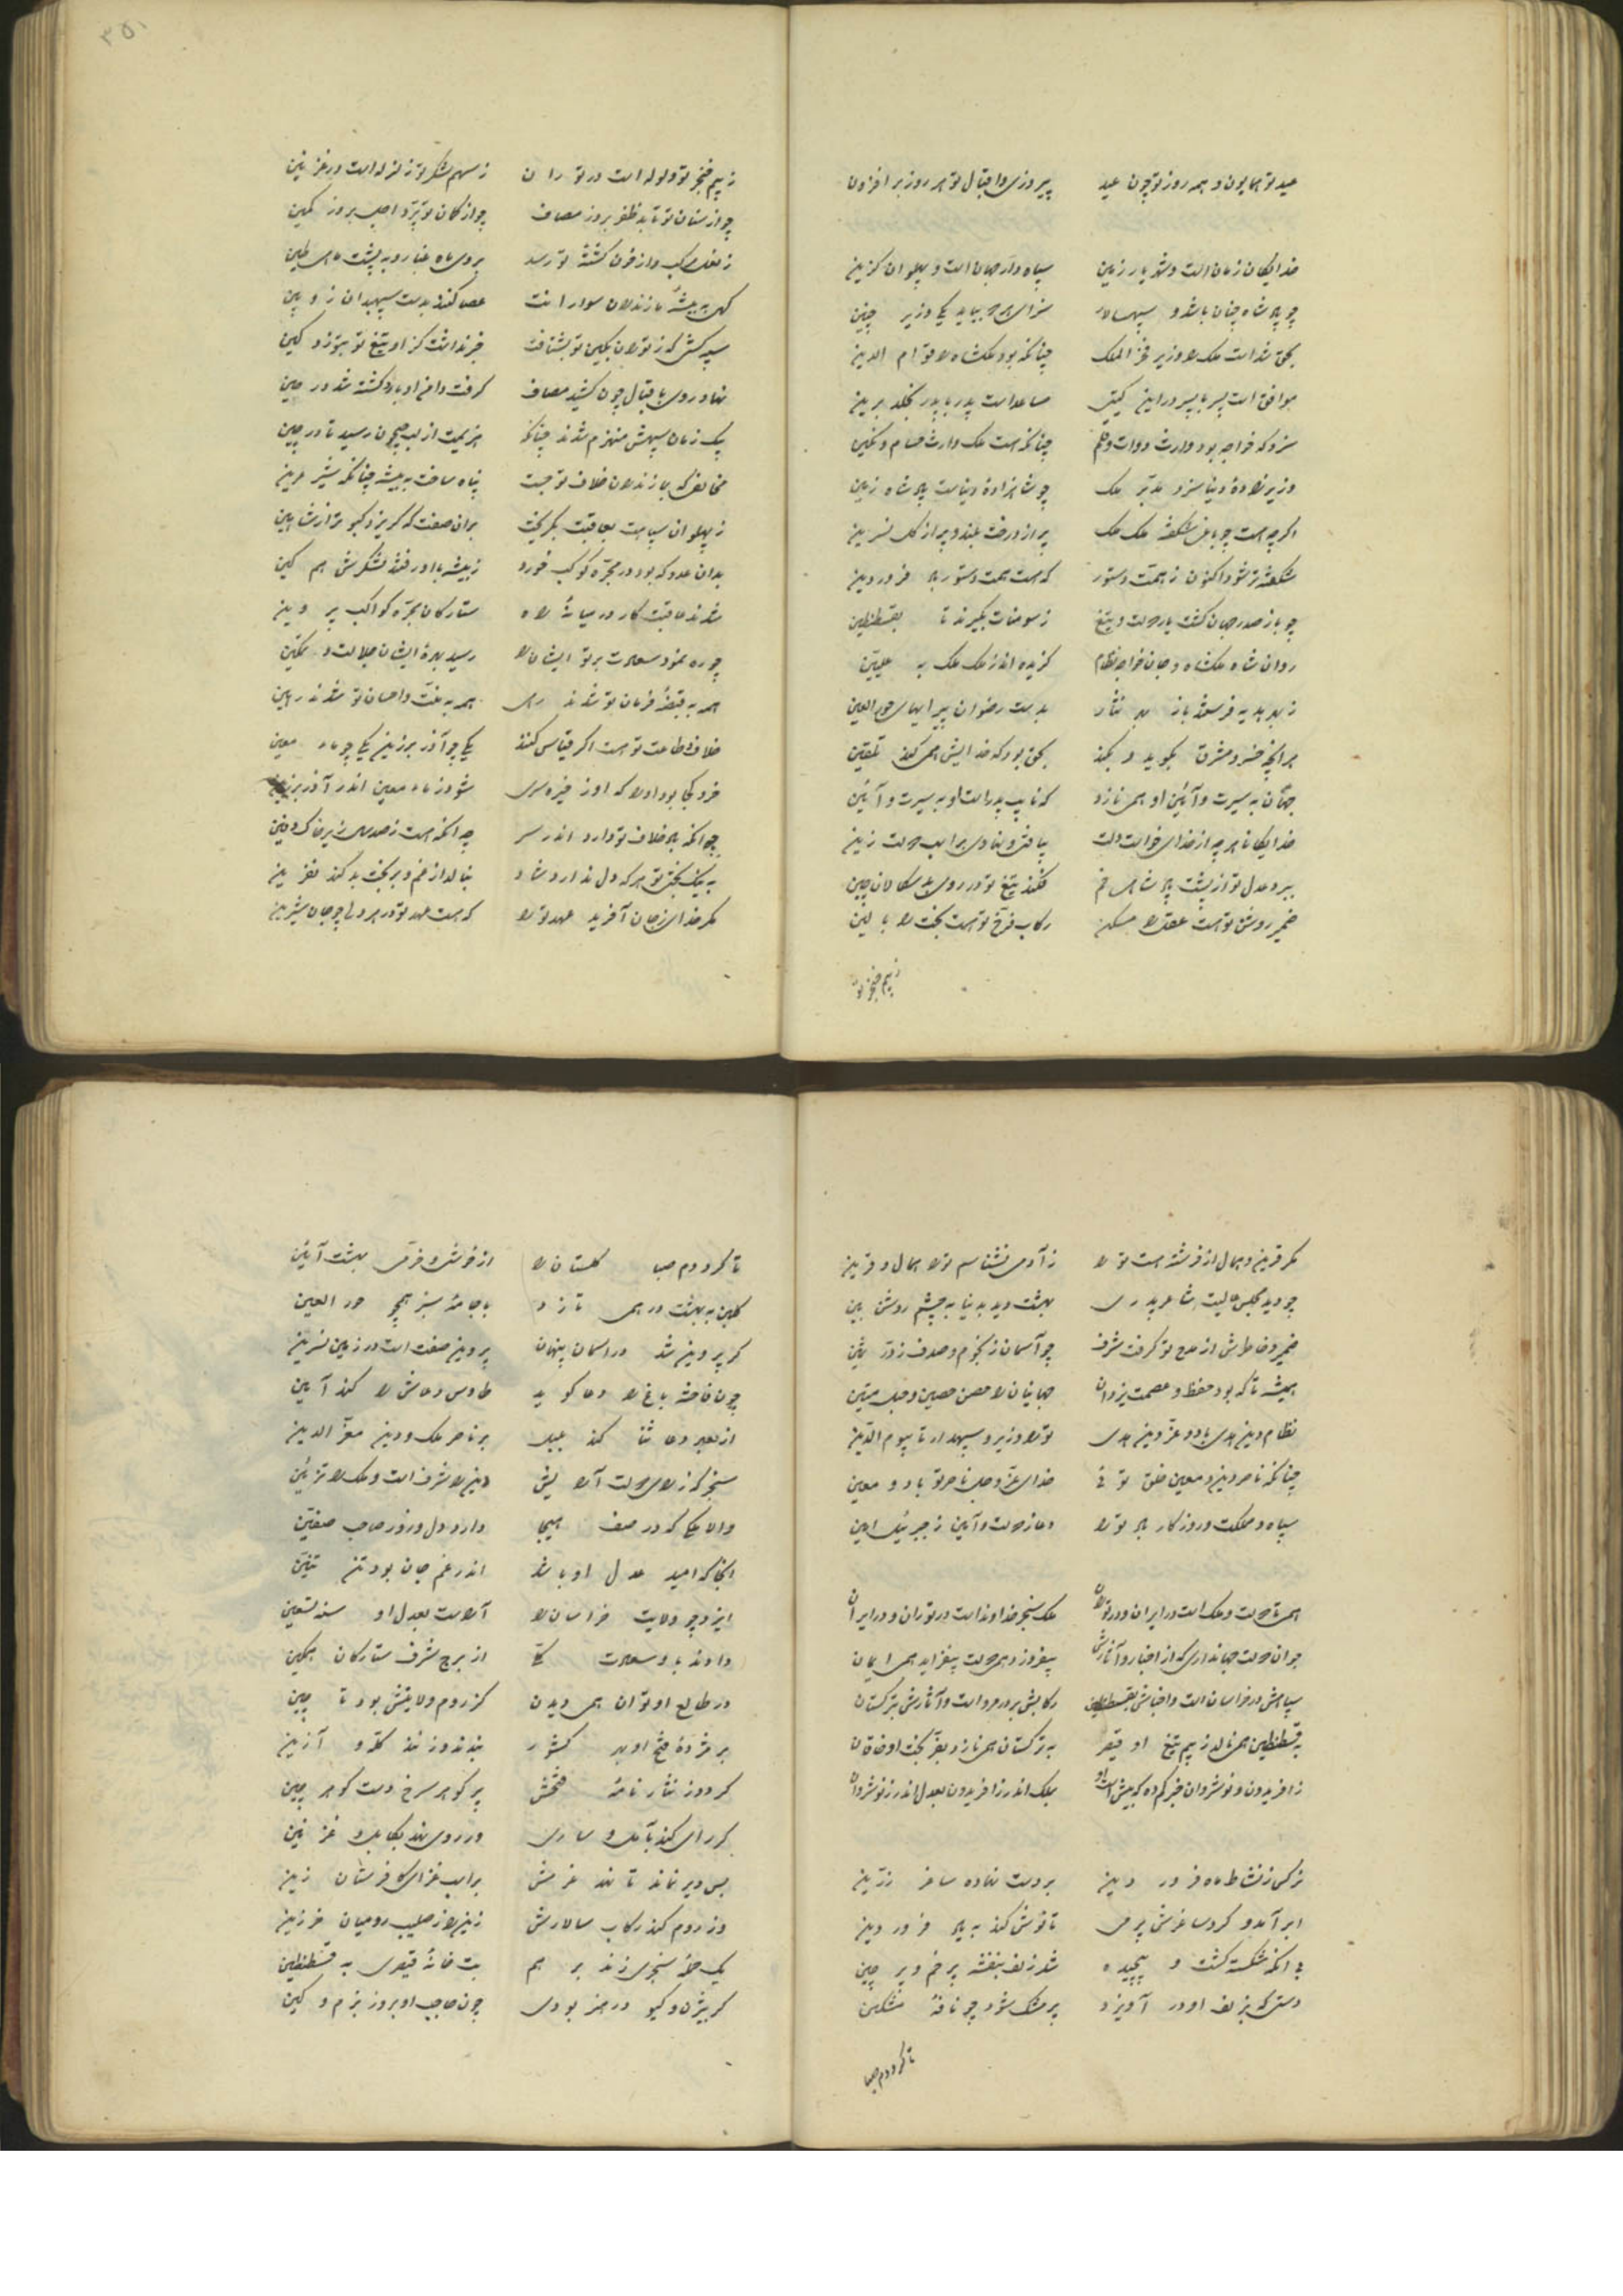 عید تو همایون و همه روز تو چون عید پیروزی و اقبال تو هر روز بر افزون
خدایگان زمان است و شهریار زمین سپاه دار جهان است و پهلوان گزین
چو پادشاه چنان باشد و سپهسالار سزای هر دو بباید یکی وزیر چنین
بحق شداست ملک را وزیر فخرالملک چنانکه بود ملکشاه را قوام الدین
موافق است پسر با پسر در این گیتی مساعد است پدر با پدر بخلد برین
سزد که خواجه بود وارث دوات و قلم چنانکه هست ملک وارث حسام و نگین
وزیرزاده دنیا سزد مدبر ملک چو شاهزاده دنیاست پادشاه زمین
اگرچه هست چو باغ شکفته ملک ملک پر از درخت بلند و پر از گل نسرین
شکفته‌تر شود اکنون ز همت دستور که هست همت دستور باد فروردین
چو باز صدر جهان گشت یار دولت و تیغ ز سومنات بگیرند تا بقسطنطین
روان شاه ملکشاه و جان خواجه نظام گزیده اند ز ملک ملک به علیین
ز بهر هدیه فرستند باز بهر نثار بدست رضوان پیرایهای حورالعین
هر آنچه خسرو مشرق بگوید و بکند بحق بود که خدایش همی کند تلقین
جهان به سیرت و آئین او همی نازد که نایب پدر است او به سیرت و آئین
خدایگانا هر چه از خدای خواست دلت بیافتی و نهادی بر اسب دولت زین
ببرد عدل تو از پشت پادشاهی خم فکند تیغ تو در روی بدسگالان چین
ضمیر روشن تو هست عقل را مسکن رکاب فرخ تو هست بخت را بالین
ز بیم خنجر تو
۳۵۱
ز بیم خنجر تو ولوله است در توران ز سهم لشکر تو زلزله است در غزنین
چو از سنان تو تابد ظفر بروز مصاف چو از کمان تو پرد اجل بروز کمین
ز نعل مرکب و از خون کشته تو رسد بروی ماه غبار و به پشت ماهی طین
کهی به بیشه مازندران سوارانت عصا کنند بدست سپهبدان زوبین
سپه کشی که ز توران بکین تو بشتافت خبر نداشت کز او تیغ تو بتوزد کین
نهاد روی باقبال چون کشید مصاف گرفت دامن ادبار و کشته شد در حین
یک زمان سپهش منهزم شدند چنانک هزیمت از لب جیحون رسید تا در چین
مخالفی که بمازندران خلاف تو جست پناه ساخت به بیشه چنانکه شیر عرین
ز پهلوان سپاهت بعاقبت بگریخت بدان صفت که گریزد کبوتر از شاهین
بدان عدو که بود در مجره کوکب خورد ز بیشه ها درفتند لشکرش هم کین
شدند عاقبت کار در میانه راه ستارگان مجره کواکب پروین
چو ره نمود سعادت بر تو ایشان را رسید بهره ایشان جلالت و تمکین
همه به قبضه فرمان تو شدند رهی همه به منت و احسان تو شدند رهین
خلاف و طاعت تو هست اگر قیاس کنند یکی چو آذر برزین یکی چو ماء معین
خرد کجا بود او را که او ز خیره سری شود ز ماء معین اندر آذر برزین
چه آنکه باد خلاف تو دارد اندر سر چه آنکه هست ز صد سال زیر خاک دفین
به نیکبختی تو هر که دل ندارد شاد بنالد از غم و بر بخت بد کند نفرین
مگر خدای ز جان آفرید عهد ترا که هست عهد تو در هر دلی چو جان شیرین
مگر قرین و همال از فرشته هست ترا ز آدمی نشناسم ترا همال و قرین
چو دید مجلس عالیت شاعر پدری بهشت دید بدنیا به چشم روشن بین
ضمیر و خاطرش از مدح تو گرفت شرف چو آسمان ز نجوم و صدف ز در ثمین
همیشه تا که بود حفظ و عصمت یزدان جهانیان را حصن حصین و حبل متین
نظام دین هدی باد و عز دین هدی ترا وزیر و سپهدار تا بیوم الدین
چنانکه ناصر دین و معین خلق توئی خدای عز و جل ناصر تو باد و معین
سپاه و مملکت و روزگار باد ترا دعا ز دولت و آمین ز جبرئیل امین
همی تا دولت و ملک است در ایران و در توران ملک سنجر خداوند است در توران و در ایران
جوان دولت جهانداری که از اخبار و آثارش بیفروزد همی دولت بیفزاید همی ایمان
سپاهش در خراسان است و اخبارش بقسطنطین رکابش بر در مرو است و آثارش بترکستان
به قسطنطین همی نالد ز بیم تیغ او قیصر به ترکستان همی نازد بفر بخت او خاقان
ز افریدون و نوشروان خبر کم ده که بیش است او بملک اندر ز افریدون بعدل اندر ز نوشروان
نرگس ز نشاط ماه فروردین بر دست نهاده ساغر زرین
ابر آمد و کرد ساغرش پر می تا نوش کند به یاد فروردین
بی آنکه شکسته گشت و پیچیده شد زلف بنفشه پر خم و پر چین
دستی که بزلف او در آویزد پر مشک شود چو نافه مشکین
تا کرد دم صبا
تا کرد دم صبا گلستان را از خوشی و خرمی بهشت آئین
گلبن به بهشت در همی نازد با جامه سبز همچو حورالعین
گر پروین شد در آسمان پنهان پروین صفت است در زمین نسرین
چون فاخته باغ را دعا گوید طاوس دعاش را کند آمین
از بعد دعا ثنا کند بلبل بر ناصر ملک و دین معزالدین
سنجر که ز رای دولت آرایش دین را شرف است و ملک را تزیین
والا ملکی که در صف هیجا دارد دل و زور صاحب صفین
آنجا که امید عدل او باشد اندر غم جان بود تن تنین
ایزد چو ولایت خراسان را آراست بعدل او سنه تسعین
دادند بدو سعادت کلی از برج شرف ستارگان همگین
در طالع او توان همی دیدن کز روم ولایتش بود تا چین
بر مژده فتح او بهر کشور بندند و زنند کله و آذین
گردون ز نثار نامه فتحش پر گوهر سرخ دست گوهر چین
گر رای کند بآمل و ساری ور روی نهد بکابل و غزنین
بس دیر نماند تا نهد عزمش بر اسب غزای کافرستان زین
وز روم کند رکاب سالارش زین را ز صلیب رومیان خرزین
یک حمله سنجری زند بر هم بت خانه قیصری به قسطنطین
گر بیژن و گیو در هنر بودی چون حاجب او بروز بزم و کین